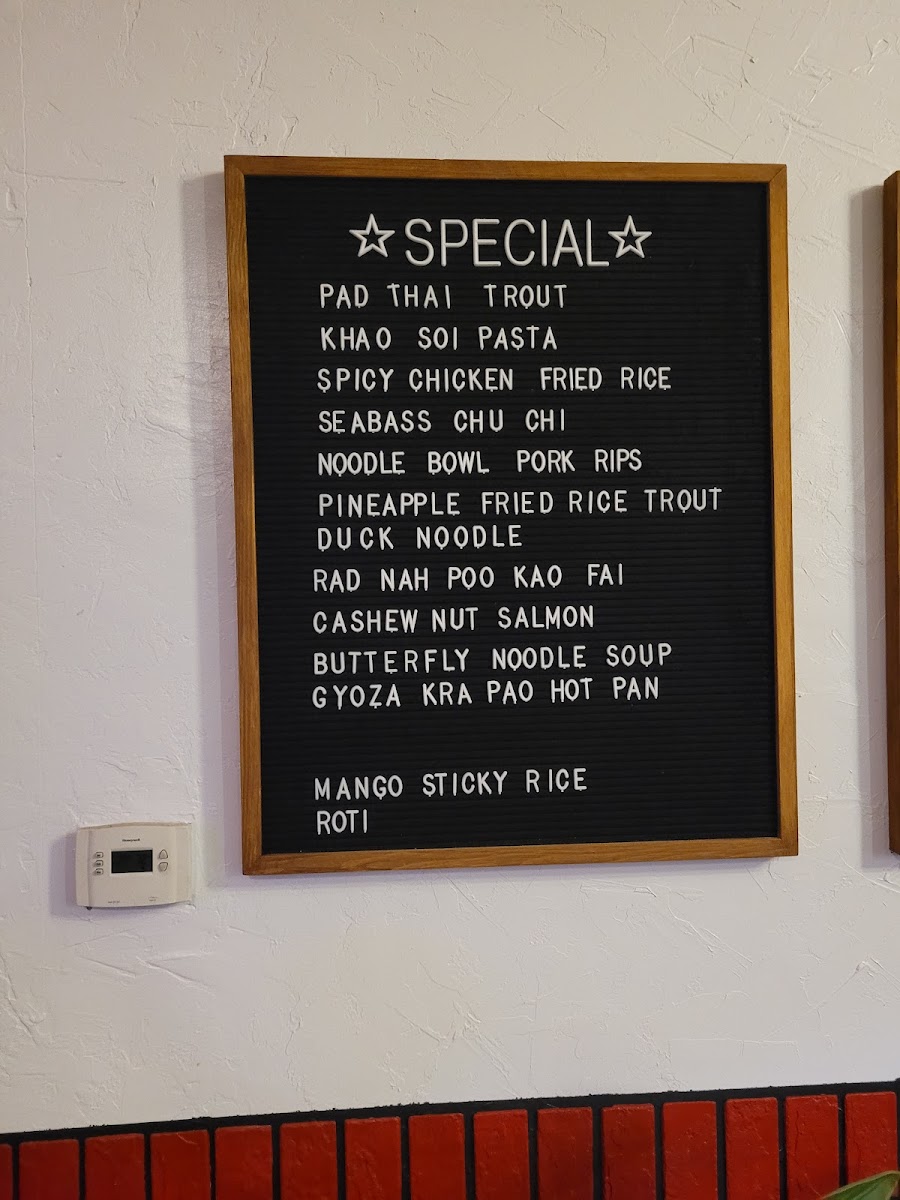 ☆SPECIAL☆
PAD THAI TROUT
KHAO SOI PASTA
SPICY CHICKEN FRIED RICE
SEABASS CHU CHI
NOODLE BOWL PORK RIPS
PINEAPPLE FRIED RICE TROUT
DUCK NOODLE
RAD NAH POO KAO FAI
CASHEW NUT SALMON
BUTTERFLY NOODLE SOUP
GYOZA KRA PAO HOT PAN
MANGO STICKY RICE
ROTI
Honeywell